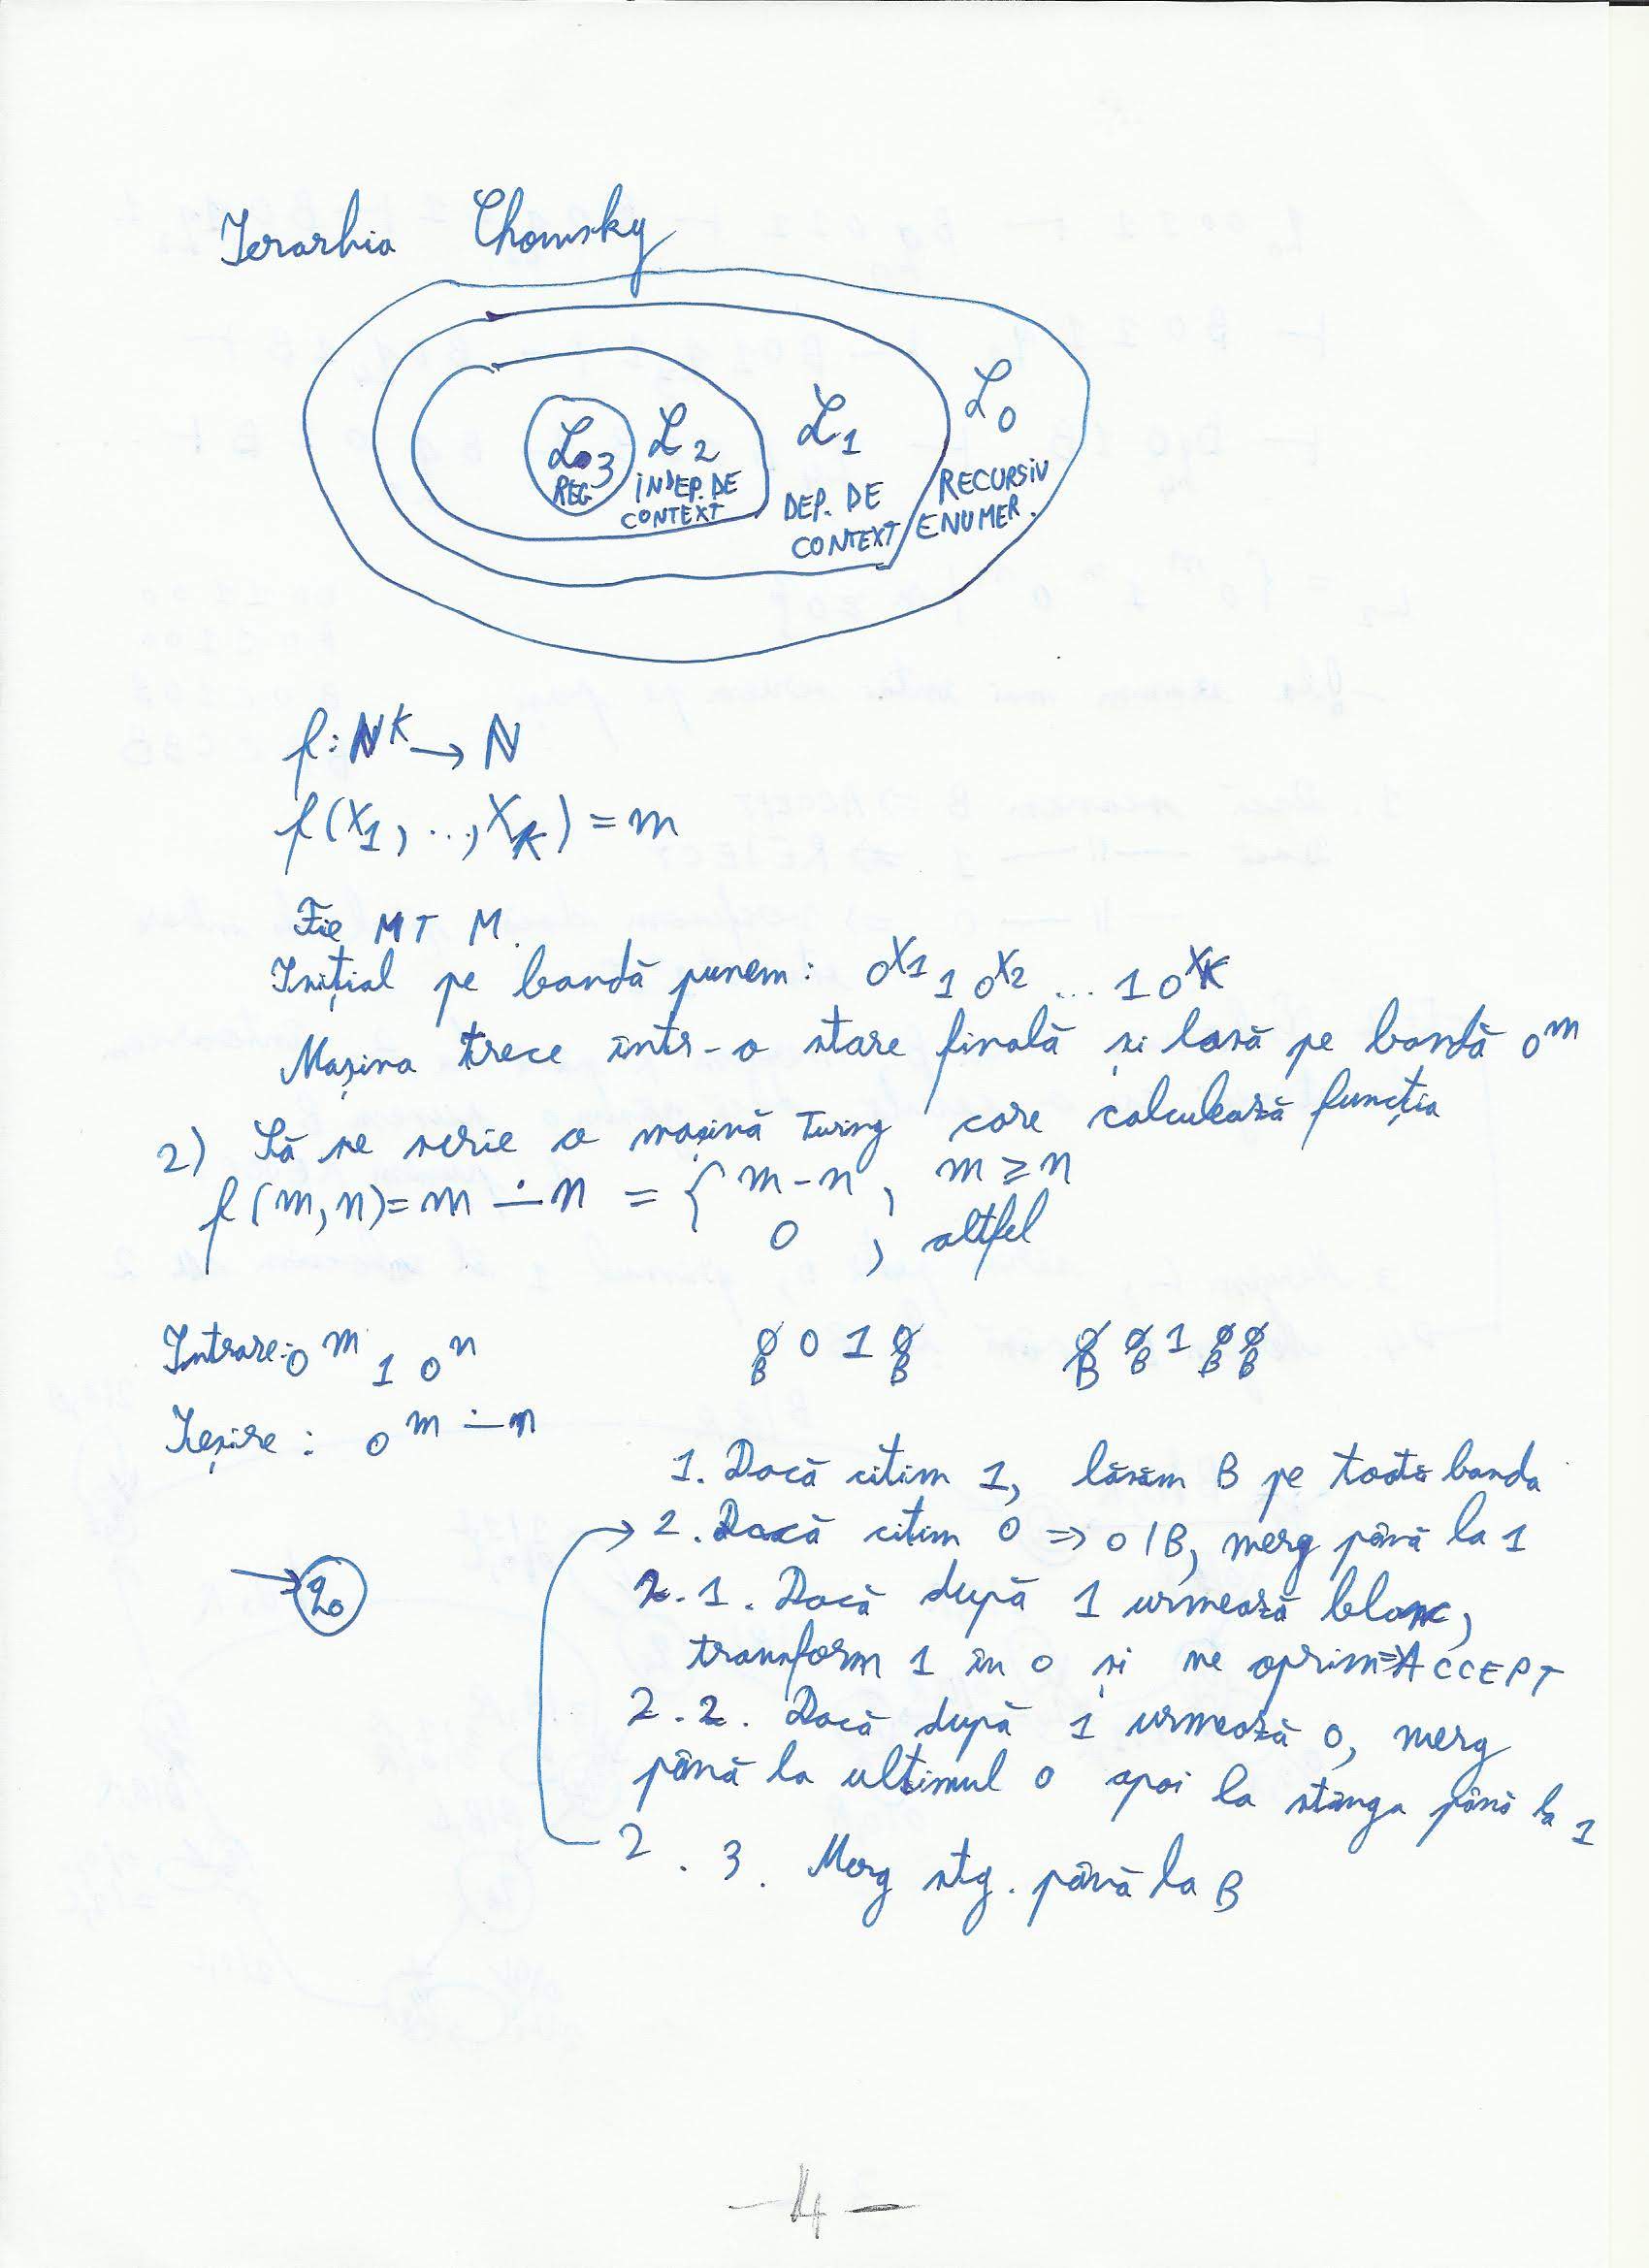 Ierarhia Chomsky
ℒ3 ℒ2 ℒ1 ℒ0
REG INDEP. DE CONTEXT DEP. DE CONTEXT RECURSIV ENUMER.
f: ℕ^K → ℕ
f(X1, ..., XK) = m
Fie MT M.
Inițial pe bandă punem: 0^X1 1 0^X2 ... 1 0^XK
Mașina trece într-o stare finală și lasă pe bandă 0^m
2) Să se scrie o mașină Turing care calculează funcția
f(m,n) = m ∸ n = { m-n, m ≥ n
0, altfel
Intrare: 0^m 1 0^n 0 0 1 0 0 0 1 0 0
B B B B B B
Ieșire: 0^m ∸ n
1. Dacă citim 1, lăsăm B pe toată banda
2. Dacă citim 0 ⇒ 0/B, merg până la 1
2.1. Dacă după 1 urmează blanc,
transform 1 în 0 și ne oprim ⇒ ACCEPT
2.2. Dacă după 1 urmează 0, merg
până la ultimul 0 apoi la stânga până la 1
2.3. Merg stg. până la B
q0
-4-